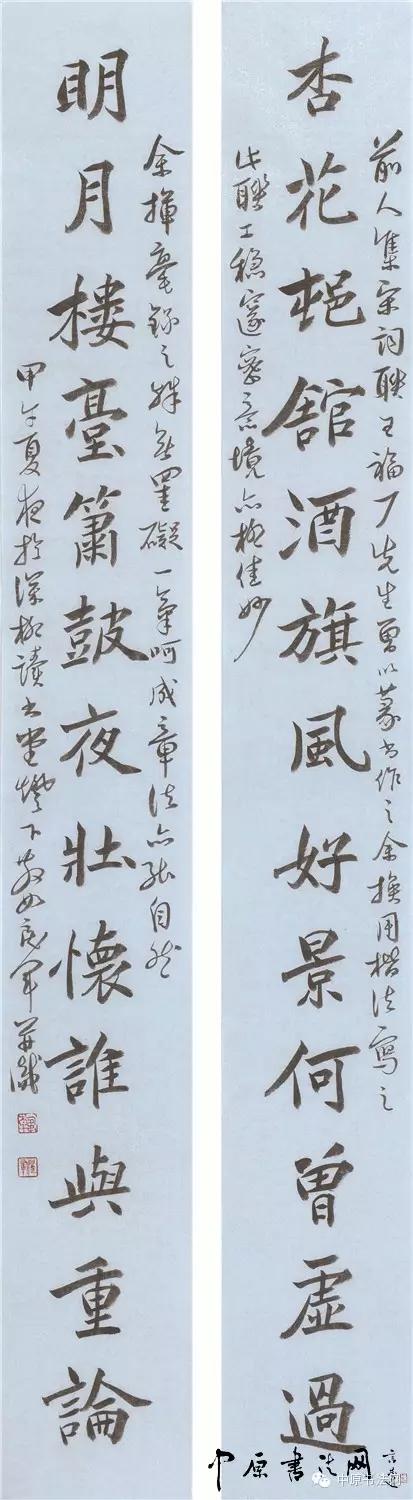 杏花邨舘酒旗風好景何曾虛過
前人集宋詞聯王福厂先生曾以篆書作之余換用楷法寫之
此聯工穩邃密意境亦極佳妙
明月樓臺簫鼓夜壯懷誰與重論
余揮毫錄之殊無罣礙一氣呵成章法亦能自然
甲午夏夜於深柳讀書堂燈下
并識
中原書法网
中原书法网